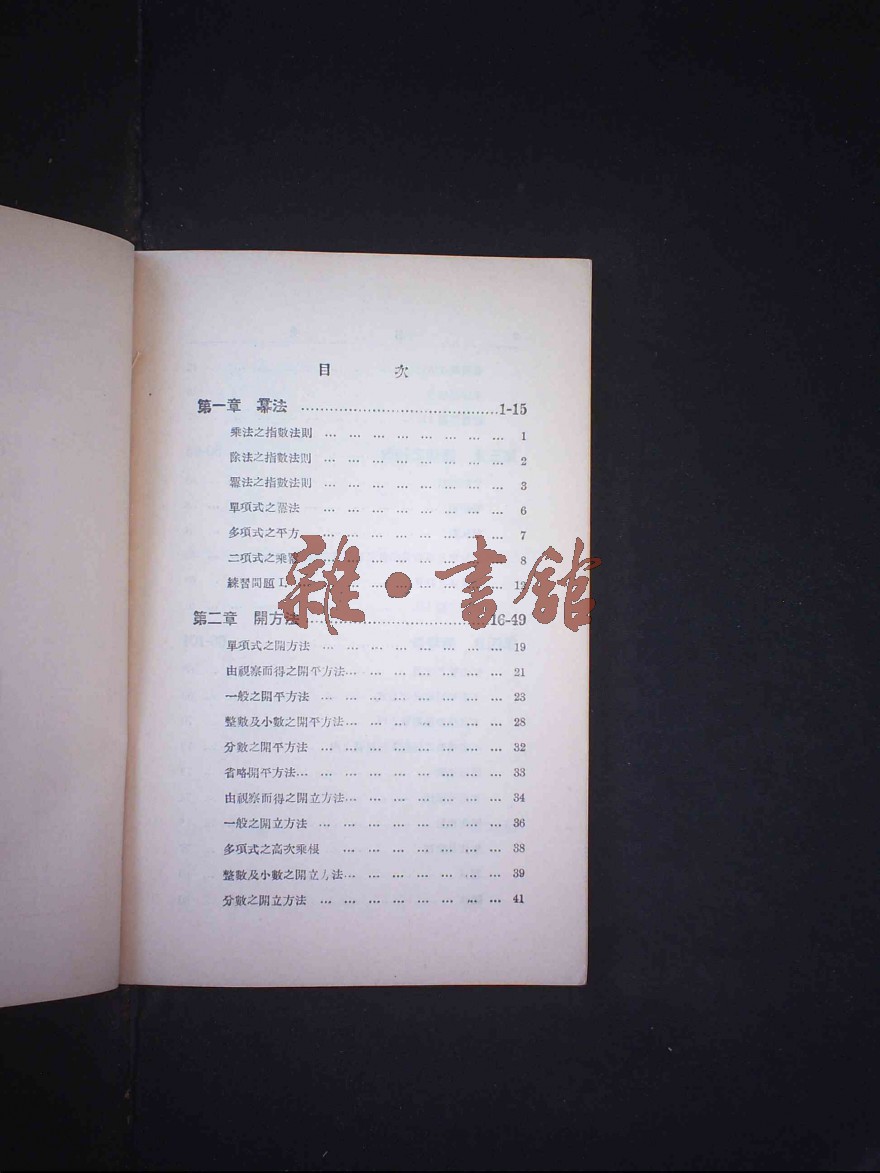 目 次
第一章 冪法 ........................................1-15
乘法之指數法則 … … … … … … … … 1
除法之指數法則 … … … … … … … … 2
冪法之指數法則 … … … … … … … … 3
單項式之冪法 … … … … … … … … 6
多項式之平方 … … … … … … … … 7
二項式之乘冪 … … … … … … … … 8
練習問題 I. … … … … … … … … … 12
雜·書館
第二章 開方法 ........................................16-49
單項式之開方法 … … … … … … … … 19
由視察而得之開平方法… … … … … … … 21
一般之開平方法 … … … … … … … … 23
整數及小數之開平方法… … … … … … … 28
分數之開平方法 … … … … … … … … 32
省略開平方法… … … … … … … … … 33
由視察而得之開立方法… … … … … … … 34
一般之開立方法 … … … … … … … … 36
多項式之高次乘根 … … … … … … … 38
整數及小數之開立方法… … … … … … … 39
分數之開立方法 … … … … … … … … 41